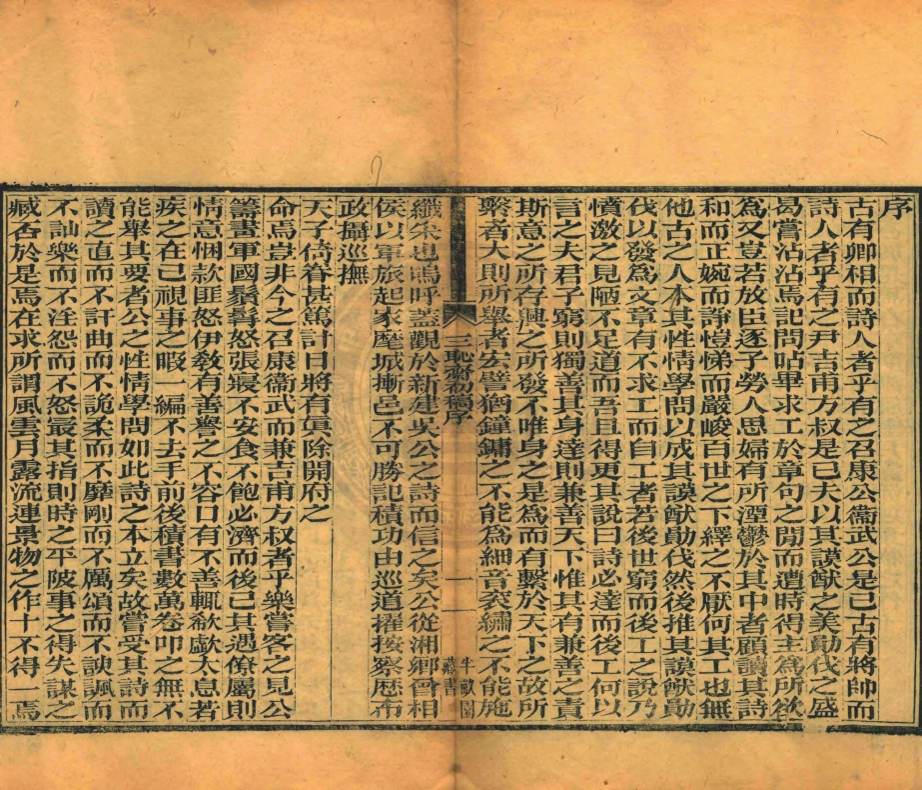 序
古有卿相而詩人者乎有之召康公衞武公是已古有將帥而
詩人者乎有之尹吉甫方叔是已夫以其謨猷之美勛伐之盛
曷嘗沾沾焉記問呫畢求工於章句之閒而遭時得主爲所欲
爲又豈若放臣逐子勞人思婦有所湮鬱於其中者顧讀其詩
和而正婉而諍愷悌而嚴峻百世之下繹之不厭何其工也無
他古之人本其性情學問以成其謨猷勛伐然後推其謨猷勛
伐以發爲文章有不求工而自工者若後世窮而後工之說乃
憤激之見陋不足道而吾且得更其說曰詩必達而後工何以
言之夫君子窮則獨善其身達則兼善天下惟其有兼善之責
斯意之所存興之所發不唯身之是爲而有繫於天下之故所
繫者大則所舉者宏譬猶鐘鏞之不能爲細音袞繡之不能施
三恥齋初稿序
一
半畝園
藏書
纖朱也嗚呼蓋觀於新建吳公之詩而信之矣公從湘鄉曾相
侯以軍旅起家摩城摲邑不可勝記積功由巡道擢按察歷布
政攝巡撫
天子倚眷甚篤計日將有眞除開府之
命焉豈非今之召康衞武而兼吉甫方叔者乎樂嘗客之見公
籌畫軍國鬚髯怒張寢不安食不飽必濟而後已其遇僚屬則
情意悃款匪怒伊教有善譽之不容口有不善輒欷歔大息若
疾之在已視事之暇一編不去手前後積書數萬卷叩之無不
能舉其要者公之性情學問如此詩之本立矣故嘗受其詩而
讀之直而不訐曲而不詭柔而不靡剛而不厲頌而不諛諷而
不訕樂而不淫怨而不怒最其指則時之平陂事之得失謀之
臧否於是焉在求所謂風雲月露流連景物之作十不得一焉